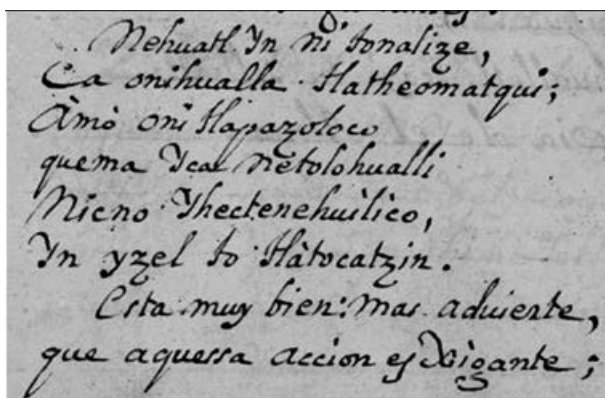 Nehuatl In ni tonalize,
Ca onihualla tlatheomatqui;
Àmò oni tlapazoloco
quema Yca netolohualli
Nicno Yhectenehuilico,
In yzel to tlàtocatzin.
Esta muy bien: mas aduierte,
que aquessa accion es Xigante;